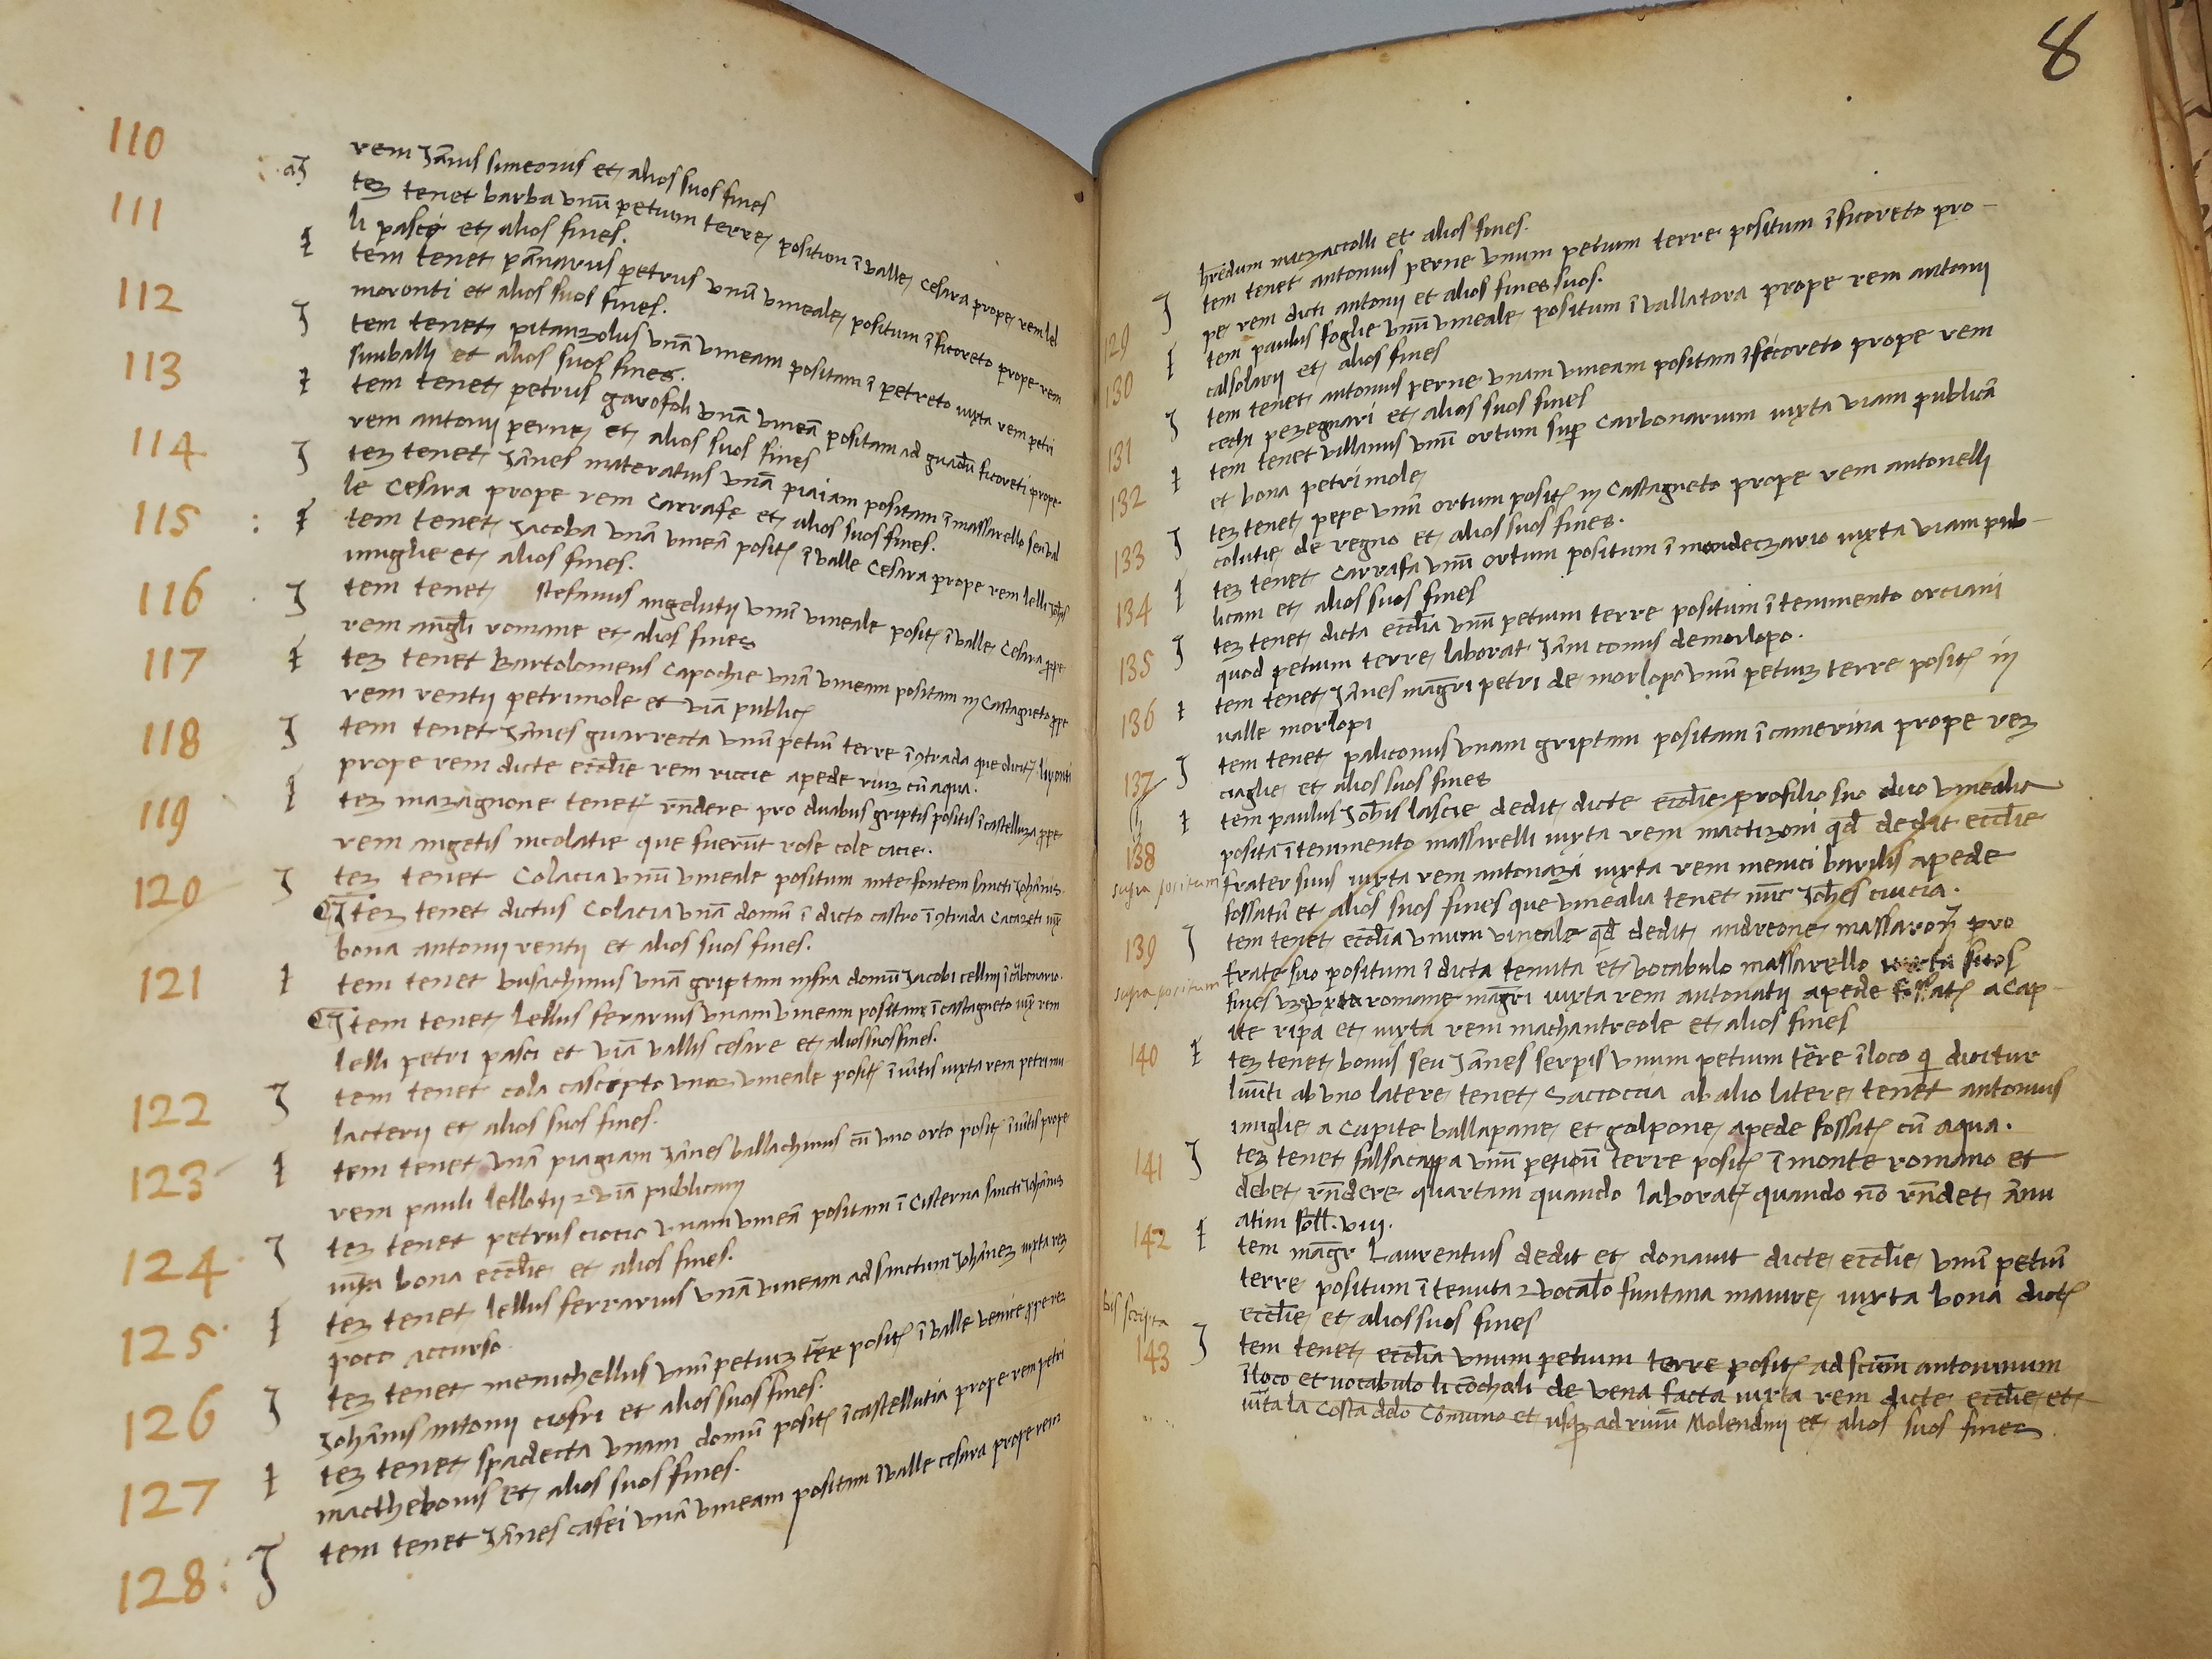 110
rem Jañis simeonis et alios suos fines
111
teʒ tenet barba unũ petium terre position ĩ valle cesara prope rem lel
li pasci et alios fines.
112
tem tenet pãnarius petrus unũ vineale positum ĩ ficoreto prope rem
moronti et alios suos fines.
113
tem tenet pitanzolus unã vineam positam ĩ petreto iuxta rem petri
simballi et alios suos fines.
114
tem tenet petrus garofoli unã vineã positam ad guadũ ficoreti prope
rem antonii perne et alios suos fines
115
teʒ tenet Jãnes materatius unã piaiam positam ĩ massarello seu val
le Cesara prope rem Carrafe et alios suos fines.
tem tenet Jacoba unã vineã posit̃ ĩ valle Cesara prope rem lelli
imiglie et alios fines.
116
tem tenet Stefanus angelutii unũ vineale posit̃ ĩ valle Cesara ꝓpe
rem angℓi romane et alios fines
117
teʒ tenet Bartolomeus Capochie unã vineam positam in Castagneto ꝓpe
rem rentii petrimole et viã public̃
118
tem tenet Jãnes guarrecta unũ petiũ terre ĩ ꝯtrada que dicit̃ livonti
prope rem dicte eccℓie rem riccie apede riuʒ cũ aqua.
119
teʒ mazagnone tenet̃ rñdere pro duabus griptis positis ĩ castelluza ꝓpe
rem angelis nicolatie que fuerũt rose cole cicie.
120
teʒ tenet Colacia unũ vineale positum ante fontem sancti Johãnis.
teʒ tenet dictus Colacia unã domũ ĩ dicto castro ĩ ꝯtrada Cacazeti iux̃
bona antonii rentii et alios suos fines.
121
tem tenet busichinus unã griptam infra domũ Jacobi cellini ĩ cãbonario.
tem tenet lellus ferarius unam vineam positam ĩ castagneto iux̃ rem
lelli petri pasci et viã vallis cesare et alios suos fines.
122
tem tenet cola cascipto unuʒ vineale posit̃ ĩ iũtis iuxta rem petri mu
lacterii et alios suos fines.
123
tem tenet unã piagiam Jãnes ballachinus cũ uno orto posit̃ ĩ iũtis prope
rem pauli lellotii ⁊ viã publicam
124
teʒ tenet petrus ciocio unam vineã positam ĩ Cisterna sancti Johãnis
iuxta bona eccℓie et alios fines.
125
teʒ tenet lellus ferrarius unã vineam ad sanctum Johãneʒ iuxta reʒ
poco accurso.
126
teʒ tenet menichellus unũ petiuʒ terre posit̃ ĩ valle venice ꝓpe reʒ
Johãnis antonii ciofri et alios suos fines.
127
teʒ tenet spadecta unam domũ posit̃ ĩ castellutia prope rem petri
macthebonis et alios suos fines.
128
tem tenet Jãnes casei unã vineam positam ĩ valle cesara prope rem
8
hredum mazzaccolli et alios fines.
129
tem tenet antonius perne unum petium terre positum ĩ ficoreto pro-
pe rem dicti antonii et alios fines suos.
130
tem paulus foglie unũ vineale positum ĩ vallatora prope rem antonii
calsolarii et alios fines
131
tem tenet antonius perne unam vineam positam ĩ ficoreto prope rem
cechi pezegnari et alios suos fines
132
tem tenet villanus unũ ortum sup̃ Carbonarium iuxta viam publicã
et bona petri mole
133
teʒ tenet pepe unũ ortum posit̃ in Castagneto prope rem antonelli
colutie de regno et alios suos fines.
134
teʒ tenet Carrafa unũ ortum positum ĩ mondeczario iuxta viam pub-
licam et alios suos fines
135
teʒ tenet dicta eccℓia unũ petium terre positum ĩ tenimento orciani
quod petium terre laborat Jãni comis demorlopo.
136
tem tenet Jãnes mãgri petri de morlopo unũ petiuʒ terre posit̃ in
valle morlopi
137
tem tenet paliconus unam griptam positam ĩ camerina prope reʒ
ciaglie et alios suos fines
138
tem paulus Johis lascie dedit dicte eccℓie pro filio suo duo vinealia
posita ĩ tenimento massarelli iuxta rem mactizoni qđ dedit eccℓie
supra positum
frater suus iuxta rem antonazi iuxta rem menici barilis apede
fossatũ et alios suos fines que vinealia tenet nũc Johes ciucia.
139
tem tenet eccℓia unum vineale qđ dedit andreone massaroni pro
frate suo positum ĩ dicta tenuta et vocabulo massarello iuxta suos
supra positum
fines uʒ iuxta romane mãgri iuxta rem antonatii apede fossat̃ a cap-
ite ripa et iuxta rem machantreole et alios fines
140
teʒ tenet bonus seu Jãnes serpis unum petium tẽre ĩ loco q̃ dicitur
liuũti ab uno latere tenet Saccoccia ab alio latere tenet antonius
imiglie a Capite ballapane et golpone apede fossat̃ cũ aqua.
141
teʒ tenet falsacappa unũ petioũ terre posit̃ ĩ monte romano et
debet rñdere quartam quando laborat̃ quando nõ rñdet ãnu
atim soll. viii.
142
tem mag̃r Laurentius dedit et donavit dicte eccℓie unũ petiũ
terre positum ĩ tenuta ⁊ vocaℓo funtana maiure iuxta bona dict̃
eccℓie et alios suos fines
bis scripta
143
tem tenet eccℓia unum petium terre posit̃ ad sctum antoninum
ĩ loco et vocabulo li cõchali de vena facta iuxta rem dicte eccℓie et
iuxta la Costa delo Comuno et usq̨ ad riuũ Molendini et alios suos fines